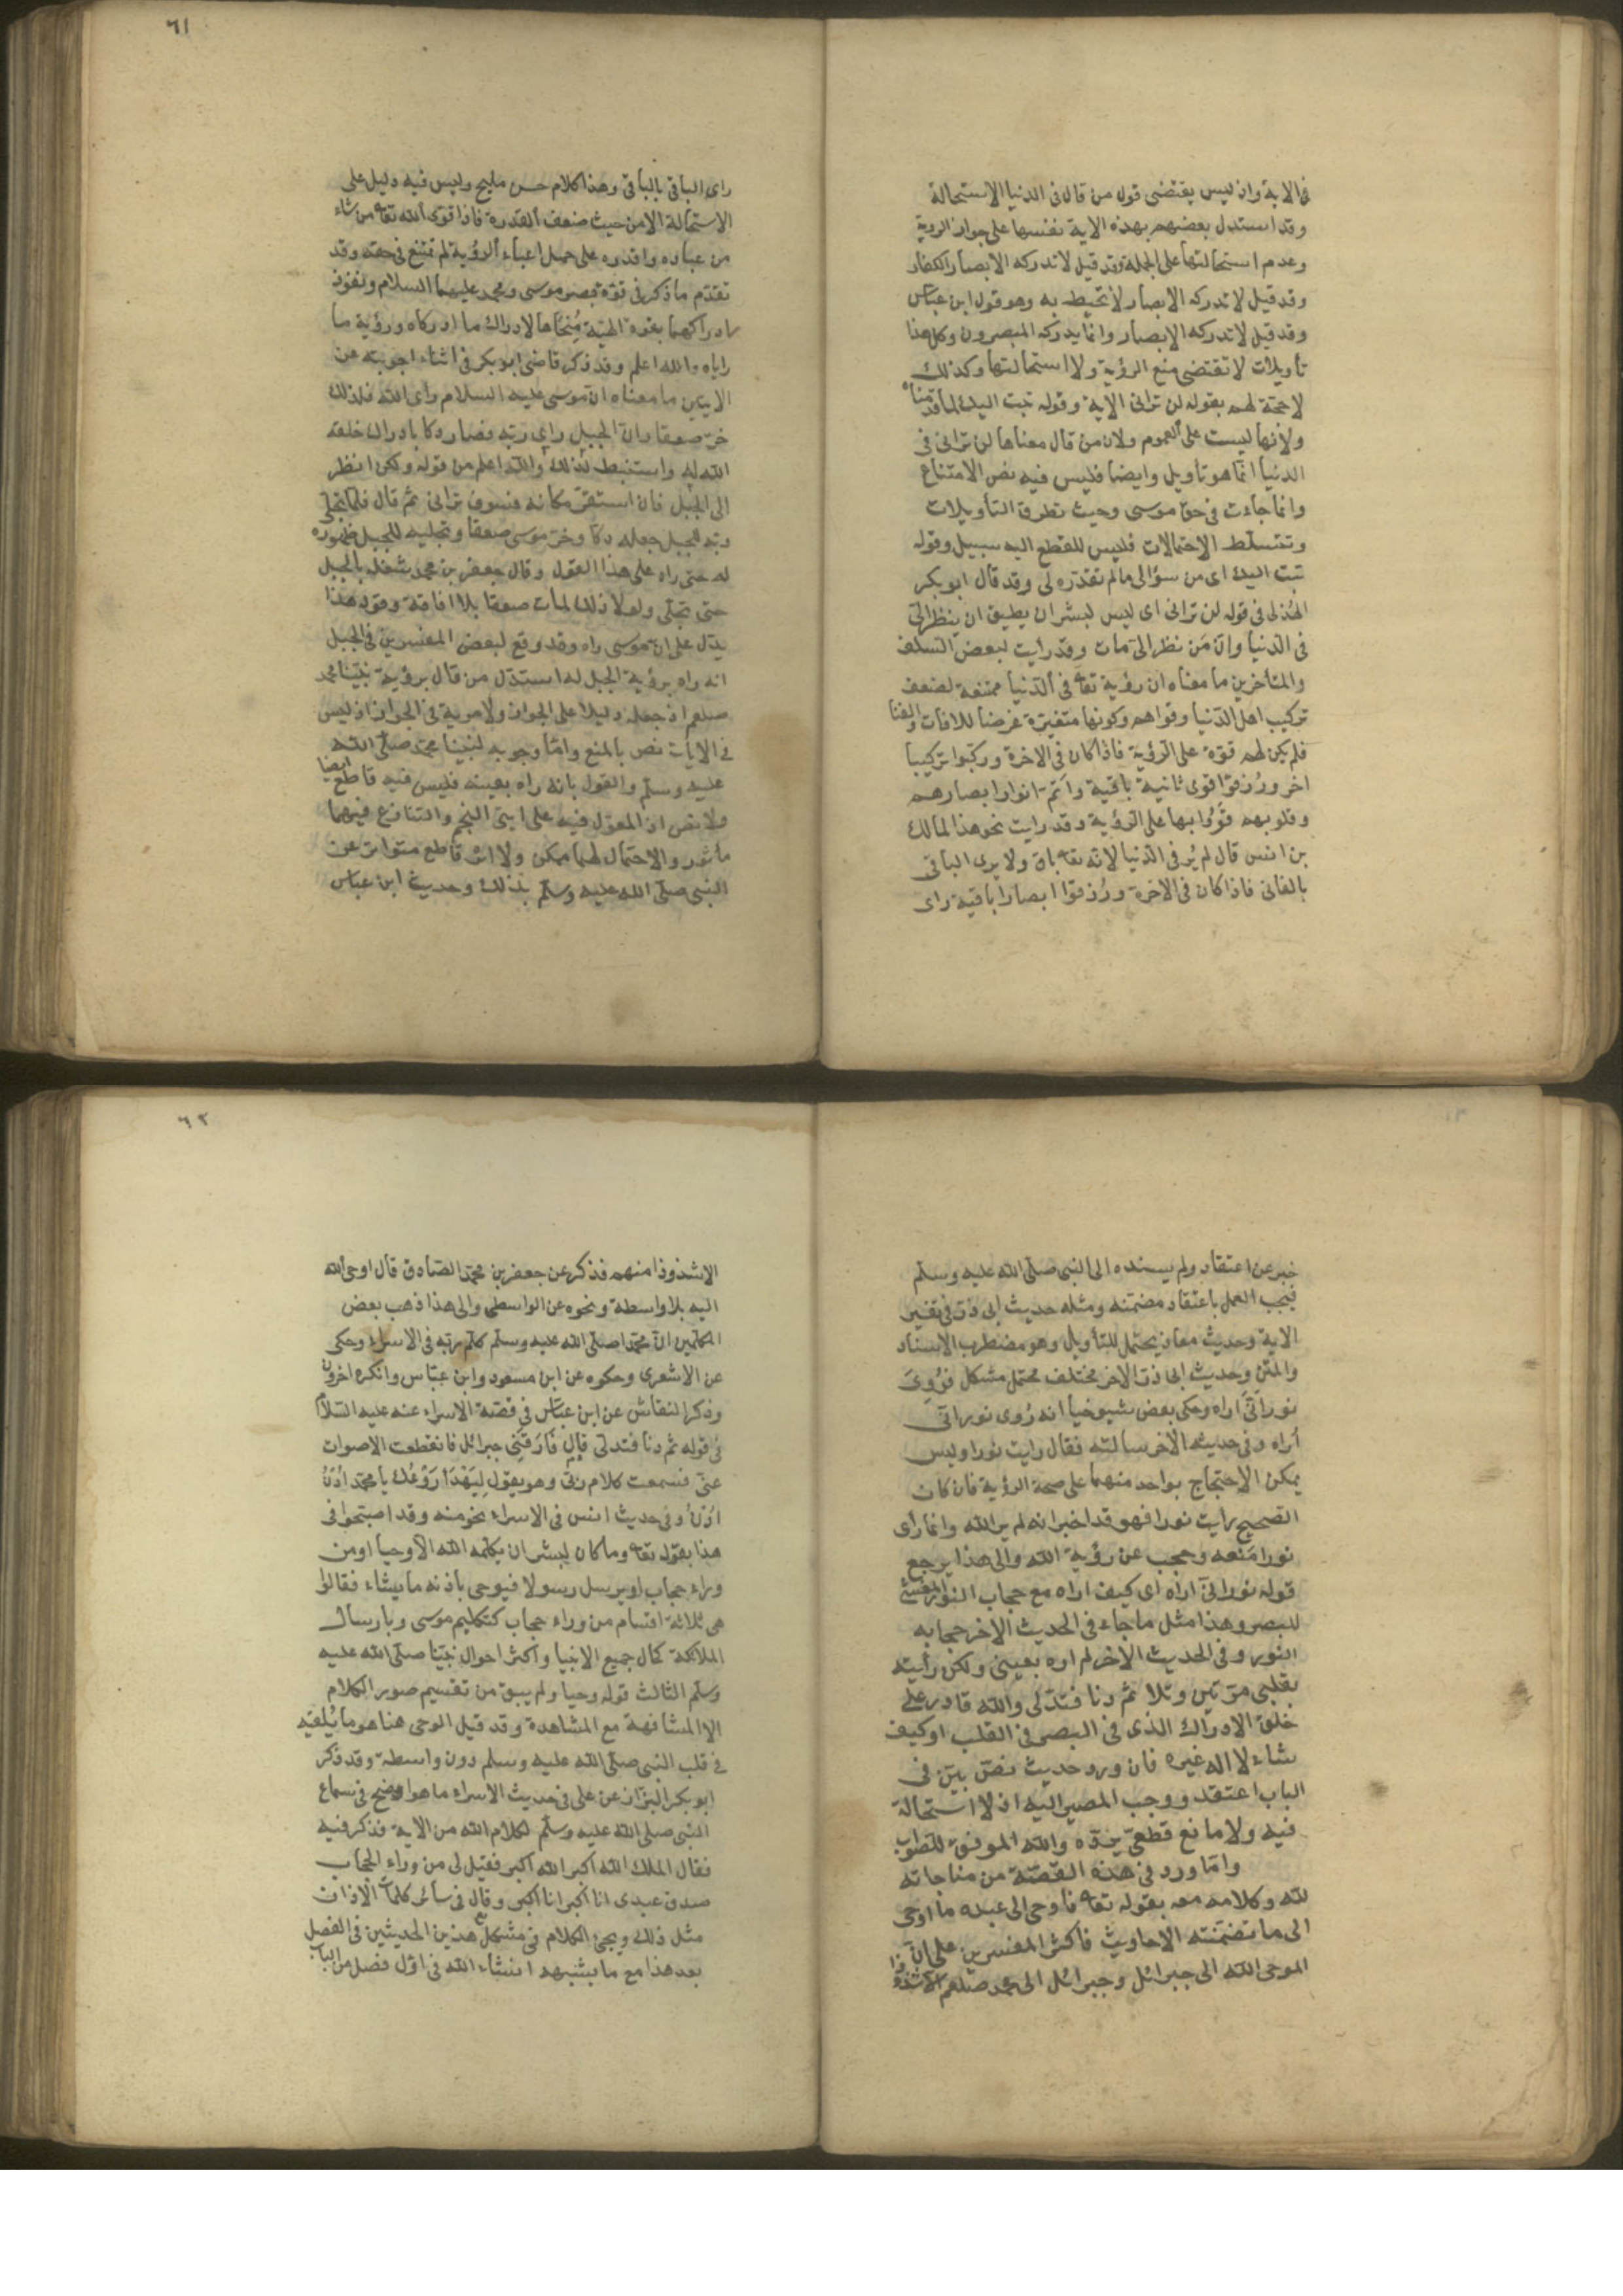 في الاية واذ ليس يقتضى قول من قال فى الدنيا الاستحالة
وقد استدل بعضهم بهذه الاية نفسها على جواز الروية
وعدم استحالتها على الجملة وقد قيل لا تدركه الابصار الكفار
وقد قيل لا تدركه الابصار لا تحيط به وهو قول ابن عباس
وقد قيل لا تدركه الابصار وانما يدركه المبصرون وكل هذا
تأويلات لا تقتضى منع الرؤية ولا استحالتها وكذلك
لا حجة لهم بقوله لن ترانى الاية وقوله تبت اليك لما قدمناه
ولانها ليست على العموم ولان من قال معناها لن ترانى فى
الدنيا انما هو تأويل وايضا فليس فيه نص الامتناع
وانما جاءت فى حق موسى وحيث تطرق التأويلات
وتتسلط الاحتمالات فليس للقطع اليه سبيل وقوله
تبت اليك اى من سؤالى ما لم تقدره لى وقد قال ابو بكر
الهذلى فى قوله لن ترانى اى ليس لبشر ان يطيق ان ينظر الىّ
فى الدنيا وانّ مَن نظر الىّ مات وقد رأيت لبعض السلف
والمتأخرين ما معناه ان رؤية تعا فى الدنيا ممتنعة لضعف
تركيب اهل الدنيا وقواهم وكونها متغيرة غرضا للافات والفنا
فلم يكن لهم قوة على الرؤية فاذا كان فى الاخرة وركبوا تركيبا
اخر ورُزقوا قوى ثانية باقية واَتم انوار ابصارهم
وقلوبهم قَوُوا بها على الرؤية وقد رايت نحو هذا لمالك
بن انس قال لم يُر فى الدنيا لانه تعا باق ولا يرى الباقى
بالفانى فاذا كان فى الاخرة ورُزقوا ابصارا باقية راى
٦١
راى الباقى بالباقى وهذا كلام حسن مليح وليس فيه دليل على
الاستحالة الا من حيث ضعف القدرة فاذا قوى الله تعا من شاء
من عباده واقدره على حمل اعباء الرؤية لم تمتنع فى حقه وقد
تقدم ما ذكر فى قوة بصر موسى ومحمد عليهما السلام ونفوذ
ادراكهما بقوة الهيّة مُنِحَاها لادراك ما ادركاه ورؤية ما
راياه والله اعلم وقد ذكر قاضى ابو بكر فى اثناء اجوبته عن
الايتين ما معناه ان موسى عليه السلام راى الله فلذلك
خرّ صعقا وان الجبل راى ربه فصار دكا بادراك خلقه
الله له واستنبط ذلك والله اعلم من قوله ولكن انظر
الى الجبل فان استقر مكانه فسوف ترانى ثم قال فلما تجلى
ربه للجبل جعله دكا وخرّ موسى صعقا وتجليه للجبل ظهوره
له حتى راه على هذا القول وقال جعفر بن محمد شغله بالجبل
حتى تجلى ولولا ذلك لمات صعقا بلا افاقة وقوله هذا
يدل على ان موسى راه وقد وقع لبعض المفسرين فى الجبل
انه راه برؤية الجبل له استدل من قال برؤية نبينا محمد
صلعم اذ جعله دليلا على الجواز ولا مرية فى الجواز اذ ليس
فى الايات نص بالمنع وامّا وجوبه لنبينا محمد صلى الله
عليه وسلم والقول بانه راه بعينه فليس فيه قاطع ايضا
ولا نص اذ المعول فيه على ايتى النجم والتنازع فيهما
مأثور والاحتمال لهما ممكن ولا اثر قاطع متواتر عن
النبى صلى الله عليه وسلم بذلك وحديث ابن عباس
خبر عن اعتقاد ولم يسنده الى النبى صلى الله عليه وسلم
فيجب العمل باعتقاد مضمنه ومثله حديث ابى ذر فى تفسير
الاية وحديث معاذ يحتمل للتأويل وهو مضطرب الاسناد
والمتن وحديث ابى ذر الاخر مختلف محتمل مشكل فرُوِىَ
نور اَنّى اَراه وحكى بعض شيوخنا انه رُوى نورانىّ
اُراه وفى حديثه الاخر سألته فقال رايت نورا وليس
يمكن الاحتجاج بواحد منهما على صحة الرؤية فان كان
الصحيح رأيت نورا فهو قد اخبر انه لم ير الله وانما رأى
نورا مَنعه وحجب عن رؤية الله والى هذا يرجع
قوله نور انىّ اراه اى كيف اراه مع حجاب النور المغشى
للبصر وهذا مثل ما جاء فى الحديث الاخر حجابه
النور وفى الحديث الاخر لم اره بعينى ولكن رأيته
بقلبى مرّتين وتلا ثم دنا فتدلى والله قادر على
خلق الادراك الذى فى البصر فى القلب او كيف
شاء لا اله غيره فان ورد حديث نصّ بيّن فى
الباب اعتقد ووجب المصير اليه اذ لا استحالة
فيه ولا مانع قطعىّ يردّه والله الموفق للصواب
وامّا ورد فى هذه القصّة من مناجاته
لله وكلامه معه بقوله تعا فاوحى الى عبده ما اوحى
الى ما تضمنته الاحاديث فاكثر المفسرين على انّ
الموحى الله الى جبرائل وجبرائل الى محمد صلعم الا شذوذا
٦٢
الا شذوذا منهم فذكر عن جعفر بن محمد الصادق قال اوحى الله
اليه بلا واسطة ونحوه عن الواسطى والى هذا ذهب بعض
المكلمين انّ محمدا صلى الله عليه وسلم كلّم ربه فى الاسراء وحكى
عن الاشعرى وحكوه عن ابن مسعود وابن عبّاس وانكره اخرون
وذكر النقاش عن ابن عبّاس فى قصّة الاسراء عنه عليه السلام
فى قوله ثم دنا فتدلّى قال فَارَقَنِى جبرائل فانقطعت الاصوات
عنى فسمعت كلام ربّى وهو يقول لِيَهْدَأ رَوْعُك يا محمّد ادْنُ
ادْنُ وفى حديث انس فى الاسراء نحو منه وقد احتجّوا فى
هذا بقوله تعا وما كان لبشر ان يكلمه الله الاّ وحيا او من
وراء حجاب او يرسل رسولا فيوحى باذنه ما يشاء فقالوا
هى ثلاثة اقسام من وراء حجاب كتكليم موسى وبارسال
الملائكة كمال جميع الانبيا واكثر احوال نبيّنا صلى الله عليه
وسلم الثالث قوله وحيا ولم يبق من تقسيم صور الكلام
الا المشافهة مع المشاهدة وقد قيل الوحى هنا هو ما يُلقيه
فى قلب النبى صلى الله عليه وسلم دون واسطة وقد ذكر
ابو بكر البزاز عن على فى حديث الاسراء ما هو اوضح فى سماع
النبى صلى الله عليه وسلم لكلام الله من الاية فذكر فيه
فقال الملك الله اكبر الله اكبر فقيل لى من وراء الحجاب
صدق عبدى انا اكبر انا اكبر وقال فى سائر كلمات الاذان
مثل ذلك ويجئ الكلام فى مشكل هذين الحديثين فى الفصل
بعد هذا مع ما يشبهه انشاء الله فى اوّل فصل من الباب